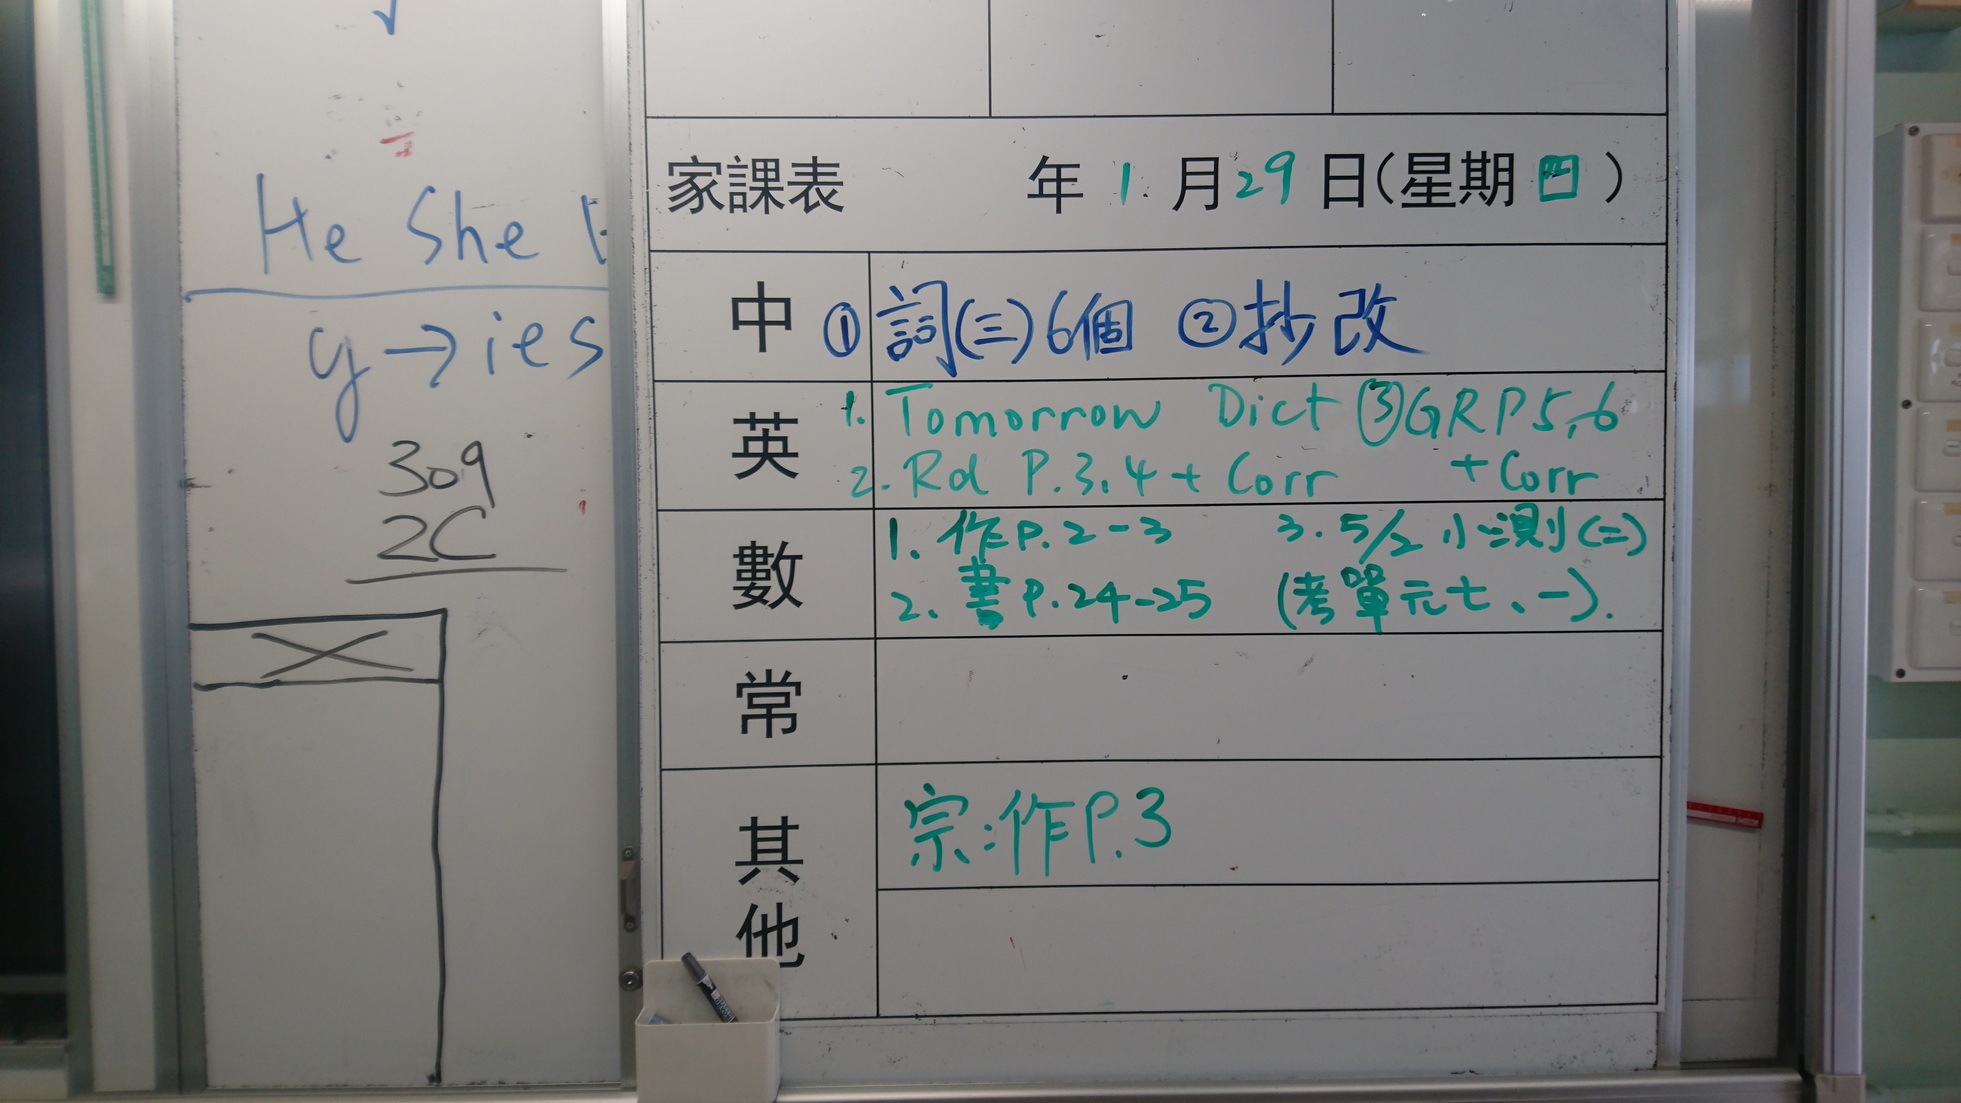 He She
y→ies
309
2C
家課表 年 1 月 29 日(星期四)
中 ① 詞(三)6個 ②抄改
英 1. Tomorrow Dict ③GRP5,6
2. Rd P.3,4 + Corr + Corr
數 1. 作P.2-3 3. 5/2 小測(二)
2. 書P.24-25 (考單元七、一).
常
其他 宗:作P.3